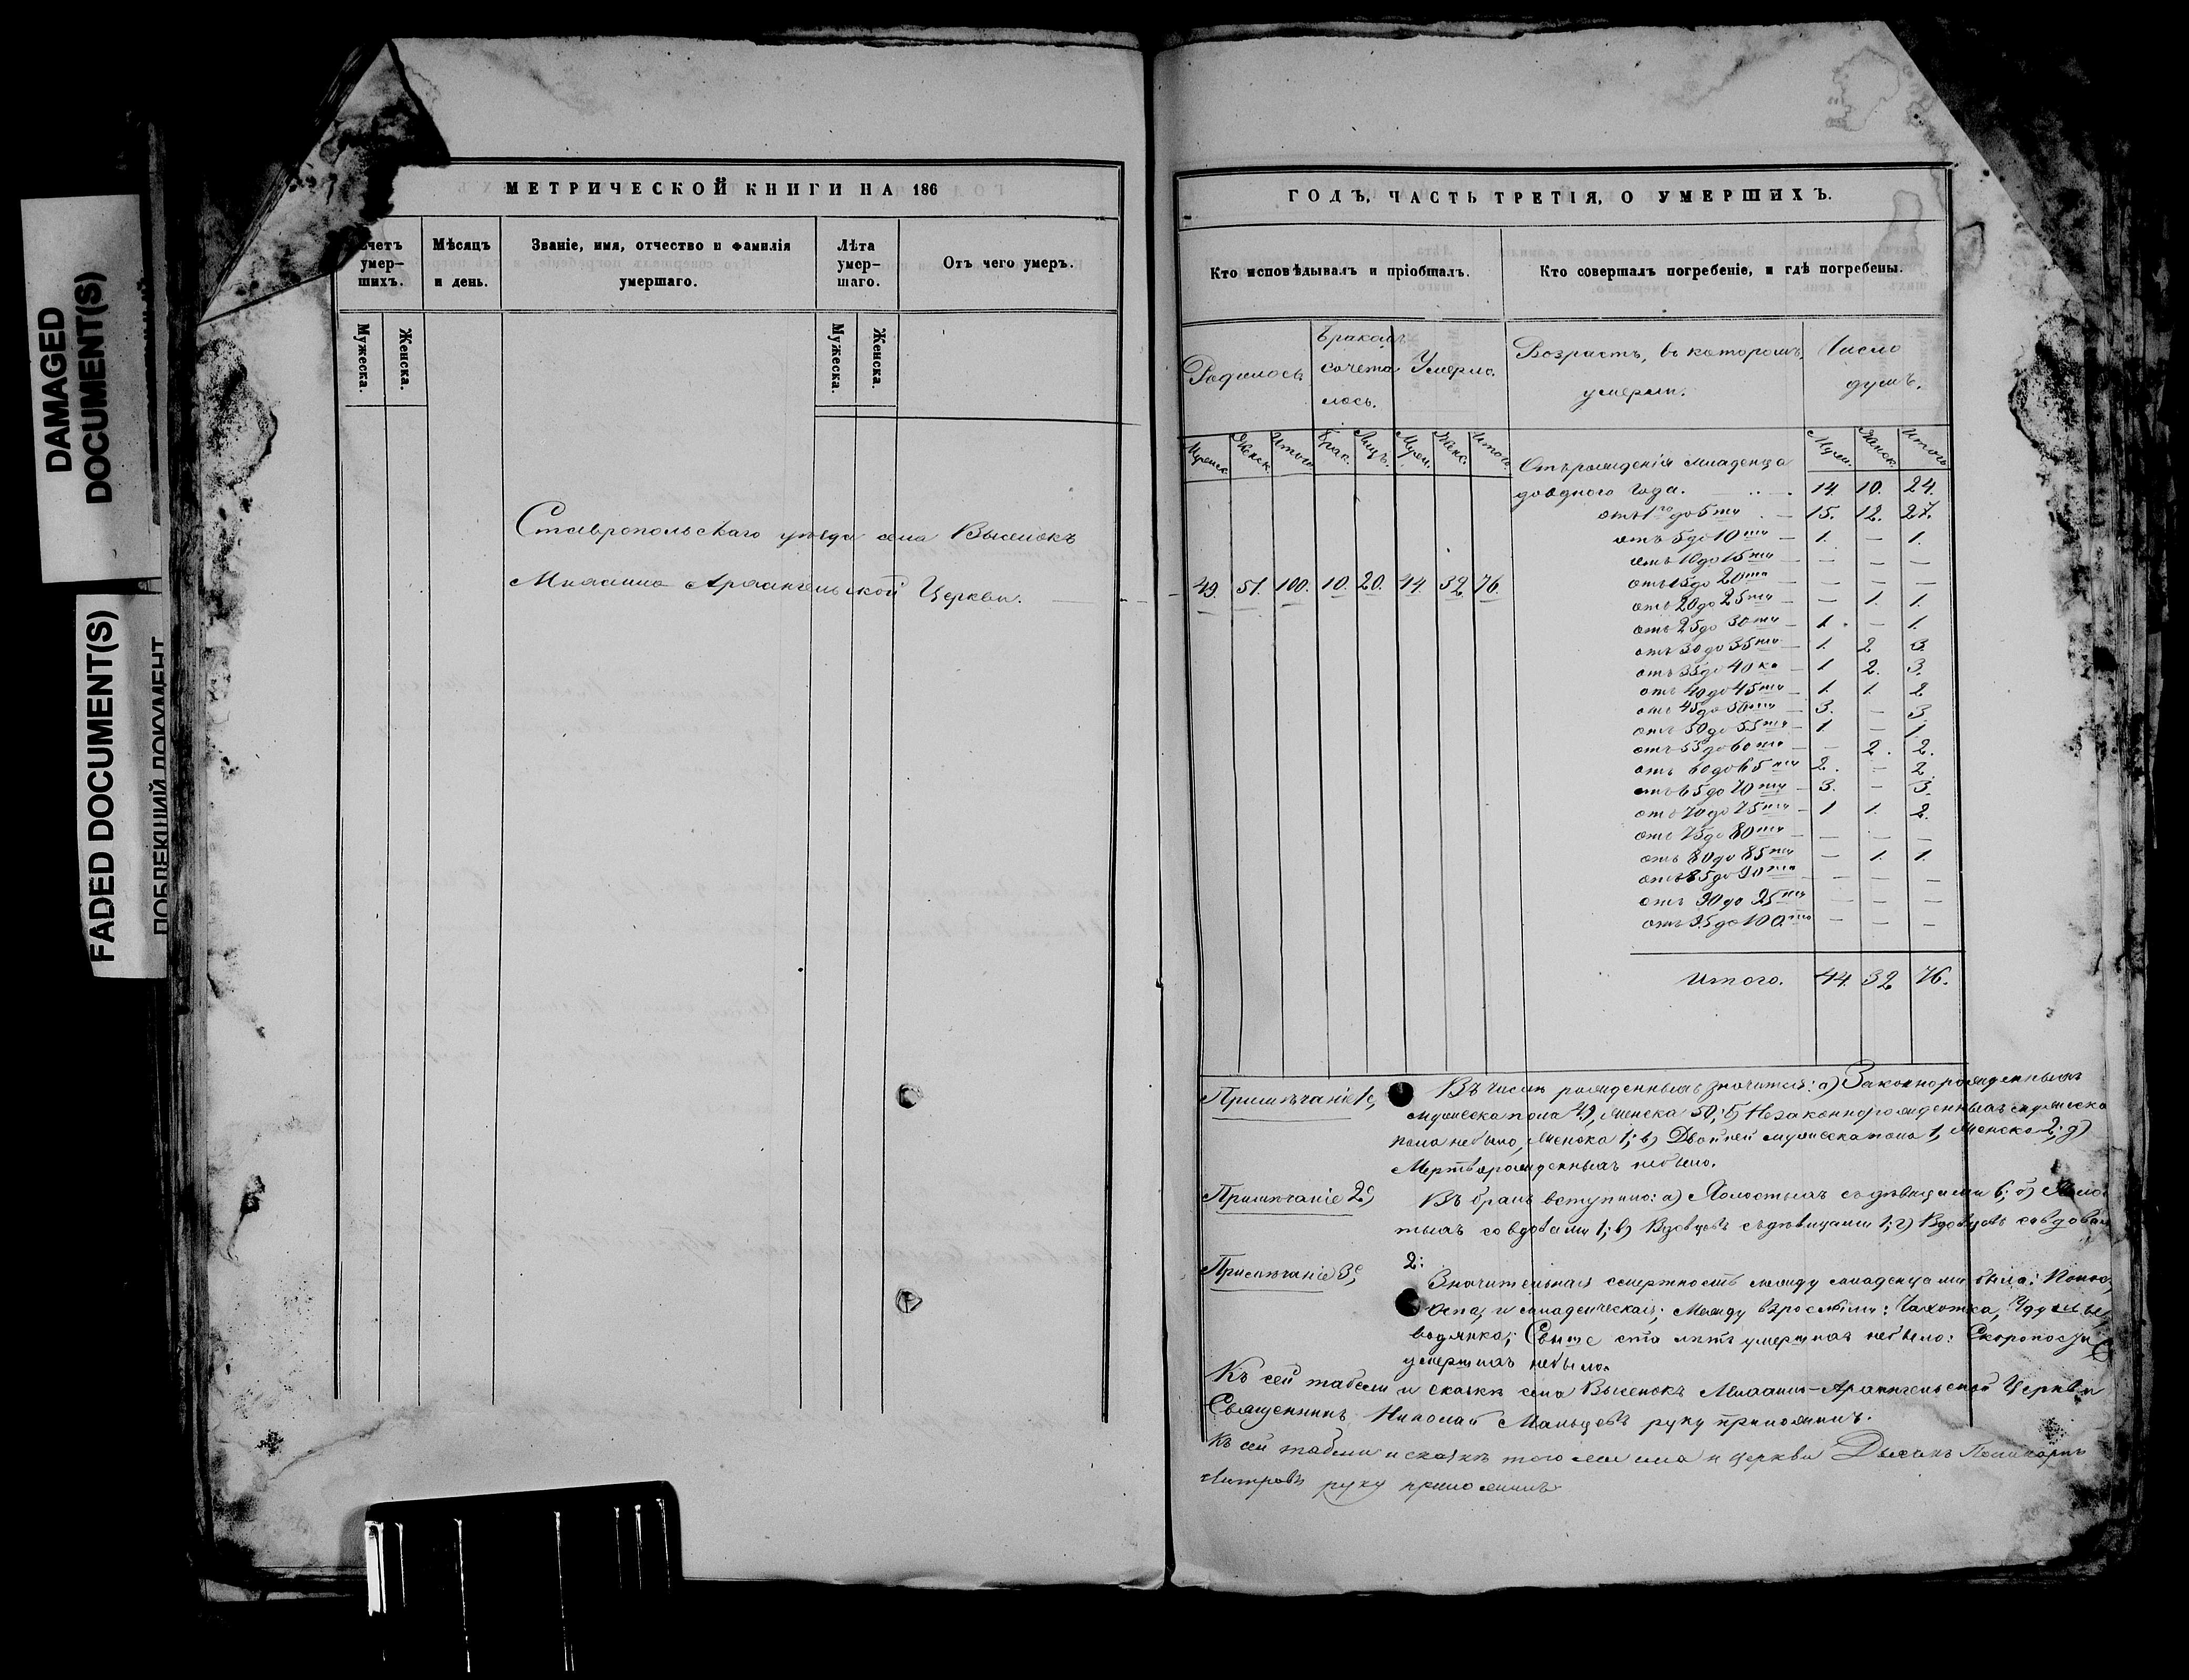 DAMAGED
DOCUMENT(S)
FADED DOCUMENT(S)
ПОБЛЕКШИЙ ДОКУМЕНТ
МЕТРИЧЕСКОЙ КНИГИ НА 186
Счетъ умер-шихъ.
Мѣсяцъ и день.
Званіе, имя, отчество и фамилія умершаго.
Лѣта умер-шаго.
Отъ чего умеръ.
Мужеска.
Женска.
Мужеска.
Женска.
Ставропольскаго уѣзда села Выселокъ
Михаило Архангельской Церкви.
ГОДЪ, ЧАСТЬ ТРЕТІЯ, О УМЕРШИХЪ.
Кто исповѣдывалъ и пріобщалъ.
Кто совершалъ погребеніе, и гдѣ погребены.
Родилось
Бракомъ
сочета
лось.
Умерло.
Возрастъ, въ которомъ
умерли.
Число
душъ.
Мужеск. Женск. Итого. Брак. Лицъ. Муж. Женс. Итого.
Муж. Женск. Итого
49. 51. 100. 10. 20. 44. 32 76.
Отъ рожденія младенца
до одного года. 14. 10. 24.
отъ 1го до 5ти — 15. 12. 27.
отъ 5 до 10ти — 1. — 1.
отъ 10 до 15ти — — — —
отъ 15 до 20ти — — — —
отъ 20 до 25ти — — 1. 1.
отъ 25 до 30ти — 1. — 1.
отъ 30 до 35ти — 1. 2 3.
отъ 35 до 40ка — 1 2. 3.
отъ 40 до 45ти — 1. 1. 2.
отъ 45 до 50ти — 3. — 3.
отъ 50 до 55ти — 1. — 1.
отъ 55 до 60ти — — 2. 2.
отъ 60 до 65ти 2. — 2.
отъ 65 до 70ти — 3. — 3.
отъ 70 до 75ти — 1 1. 2.
отъ 75 до 80ти — — — —
отъ 80 до 85ти — 1. 1.
отъ 85 до 90та — — —
отъ 90 до 95ти — — —
отъ 95 до 100.та — — —
Итого. 44. 32 76.
Примѣчаніе 1е, Въ числѣ рожденныхъ значится: а) Законнорожденныхъ
мужеска пола 49, женска 50; б) Незаконнорожденныхъ мужеска
пола небыло, женска 1; в) Двойней мужеска пола 1, женска 2; д)
Мертворожденныхъ небыло.
Примѣчаніе 2е, Въ бракъ вступило: а) Холостыхъ съ дѣвицами 6; б) Холос
тыхъ со вдовами 1; в) Вдовцевъ съ дѣвицами 1; г) Вдовцевъ со вдовам
2:
Примѣчаніе 3е, Значительная смертность между младенцами была:
Оспа, и младенческая; Между взрослыми: Чахотка,
водянка; Свыше ста лѣтъ умершихъ небыло: Скоропости
умершихъ небыло.
Къ сей табели и сказкѣ села Выселокъ Михаило-Архангельской Церкви
Священникъ Николай Мальцевъ руку приложилъ.
Къ сей табели и сказкѣ того же села и церкви Дьяконъ Поликарпъ
руку приложилъ